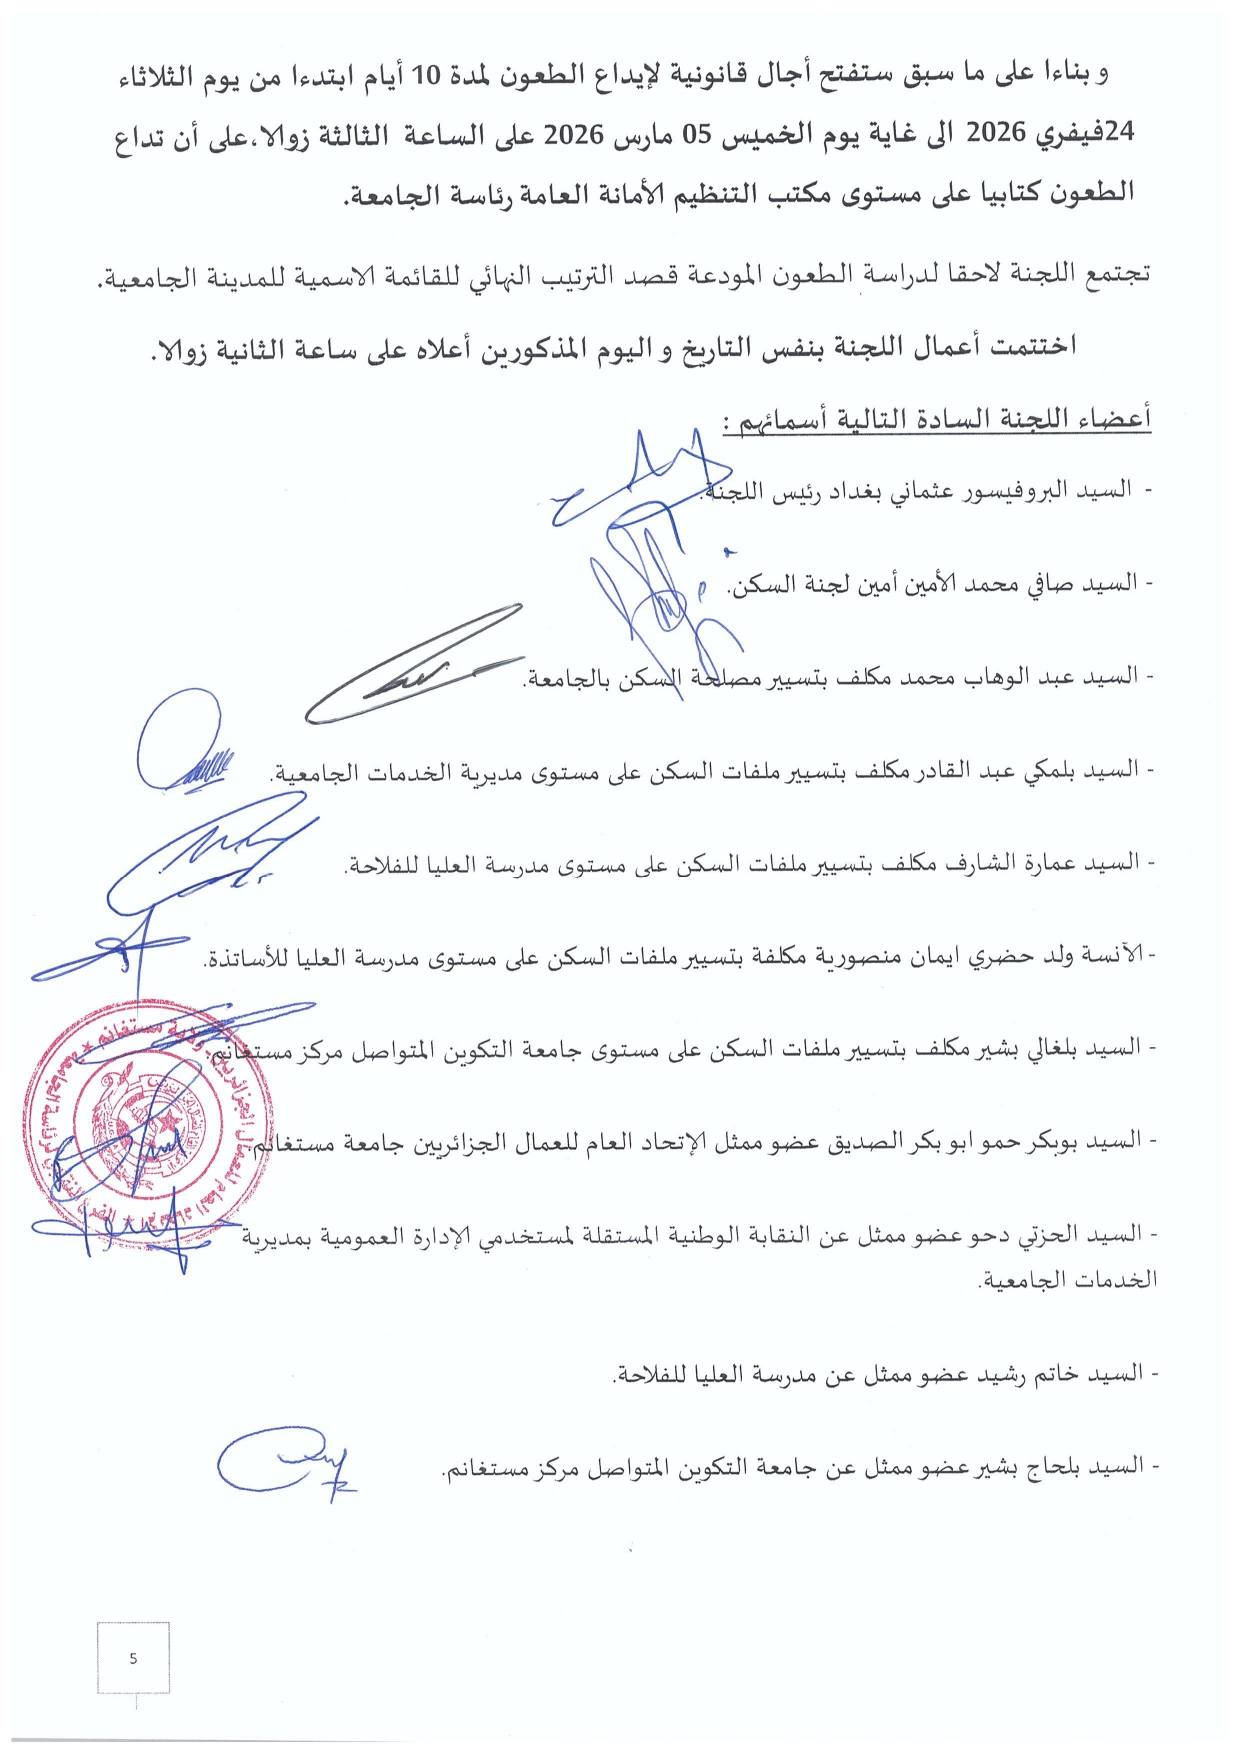 و بناءا على ما سبق ستفتح أجال قانونية لإيداع الطعون لمدة 10 أيام ابتدءا من يوم الثلاثاء
24فيفري 2026 الى غاية يوم الخميس 05 مارس 2026 على الساعة الثالثة زوالا،على أن تداع
الطعون كتابيا على مستوى مكتب التنظيم الأمانة العامة رئاسة الجامعة.
تجتمع اللجنة لاحقا لدراسة الطعون المودعة قصد الترتيب النهائي للقائمة الاسمية للمدينة الجامعية.
اختتمت أعمال اللجنة بنفس التاريخ و اليوم المذكورين أعلاه على ساعة الثانية زوالا.
أعضاء اللجنة السادة التالية أسمائهم :
- السيد البروفيسور عثماني بغداد رئيس اللجنة.
- السيد صافي محمد الأمين أمين لجنة السكن.
- السيد عبد الوهاب محمد مكلف بتسيير مصلحة السكن بالجامعة.
- السيد بلمكي عبد القادر مكلف بتسيير ملفات السكن على مستوى مديرية الخدمات الجامعية.
- السيد عمارة الشارف مكلف بتسيير ملفات السكن على مستوى مدرسة العليا للفلاحة.
- الآنسة ولد حضري ايمان منصورية مكلفة بتسيير ملفات السكن على مستوى مدرسة العليا للأساتذة.
- السيد بلغالي بشير مكلف بتسيير ملفات السكن على مستوى جامعة التكوين المتواصل مركز مستغانم.
- السيد بوبكر حمو ابو بكر الصديق عضو ممثل الإتحاد العام للعمال الجزائريين جامعة مستغانم.
- السيد الحزتي دحو عضو ممثل عن النقابة الوطنية المستقلة لمستخدمي الإدارة العمومية بمديرية
الخدمات الجامعية.
- السيد خاتم رشيد عضو ممثل عن مدرسة العليا للفلاحة.
- السيد بلحاج بشير عضو ممثل عن جامعة التكوين المتواصل مركز مستغانم.
5